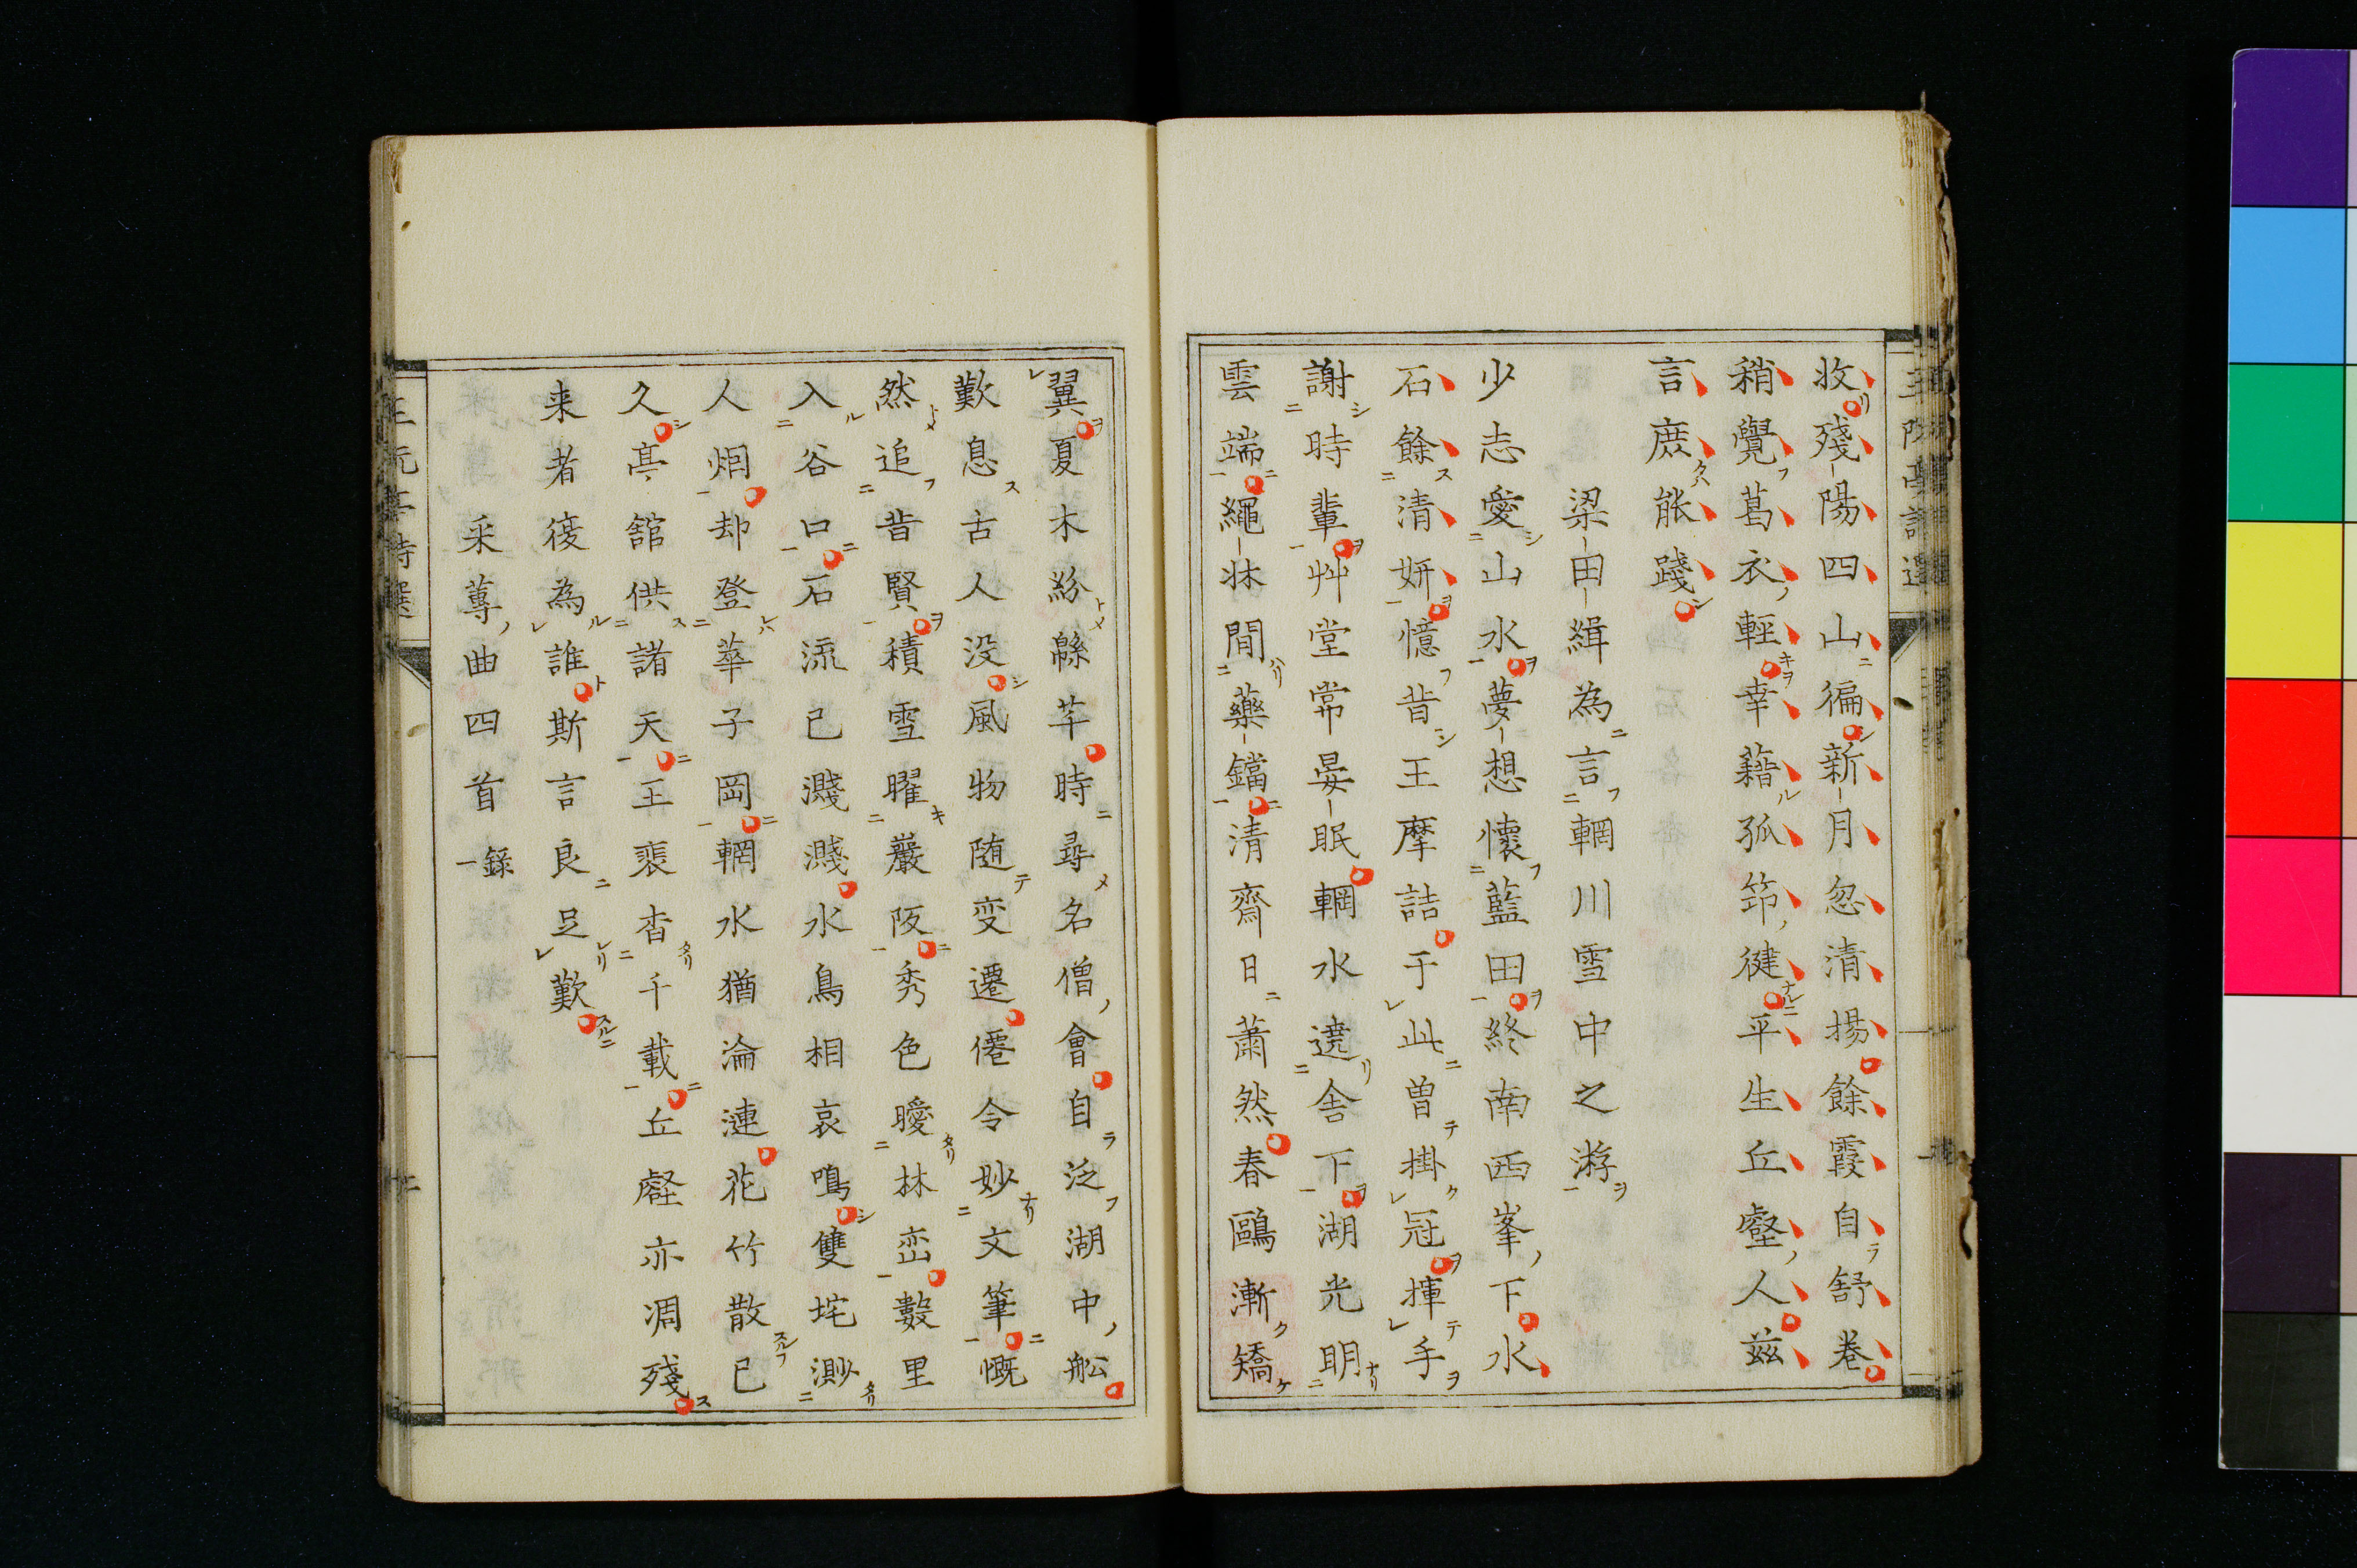 收殘陽四山徧新月忽清揚餘霞自舒卷
稍覺葛衣輕幸藉孤笻徤平生丘壑人茲
言庶能踐
梁田緝為言輞川雪中之游
少志愛山水夢想懷藍田終南西峯下水
石餘清妍憶昔王摩詰于此曾掛冠揮手
謝時輩艸堂常晏眠輞水遶舍下湖光明
雲端繩牀間藥鐺清齋日蕭然春鷗漸矯
翼夏木紛緜芊時尋名僧會自泛湖中舩
歎息古人没風物随变遷僊令妙文筆慨
然追昔賢積雪曜巖阪秀色曖林巒數里
入谷口石流已濺濺水鳥相哀鳴雙垞渺
人烟却登華子岡輞水猶淪漣花竹散已
久亭舘供諸天王裴杳千載丘壑亦凋殘
来者復為誰斯言良足歎
采蓴曲四首 錄一